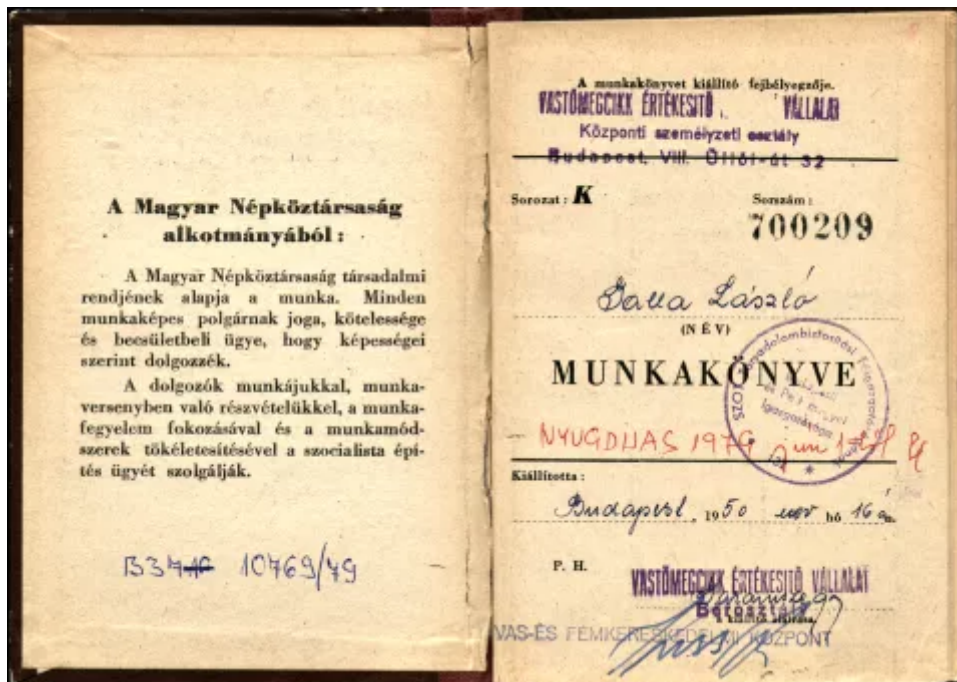 A Magyar Népköztársaság
alkotmányából:
A Magyar Népköztársaság társadalmi
rendjének alapja a munka. Minden
munkaképes polgárnak joga, kötelessége
és becsületbeli ügye, hogy képességei
szerint dolgozzék.
A dolgozók munkájukkal, munka-
versenyben való részvételükkel, a munka-
fegyelem fokozásával és a munkamód-
szerek tökéletesítésével a szocialista épí-
tés ügyét szolgálják.
10769/79
A munkakönyvet kiállító fejbélyegzője.
VASTÖMEGCIKK ÉRTÉKESITŐ VÁLLALAT
Központi személyzeti osztály
Budapest, VIII. Üllői-út 32
Sorozat: K
Sorszám:
700209
László
(NÉV)
MUNKAKÖNYVE
NYUGDIJAS 1979 jun
Kiállította:
Budapest, 1950 nov hó 16 án.
P. H.
VASTÖMEGCIKK ÉRTÉKESITŐ VÁLLALAT
a kiállító aláírása.
VAS-ÉS FÉMKERESKEDELMI KÖZPONT